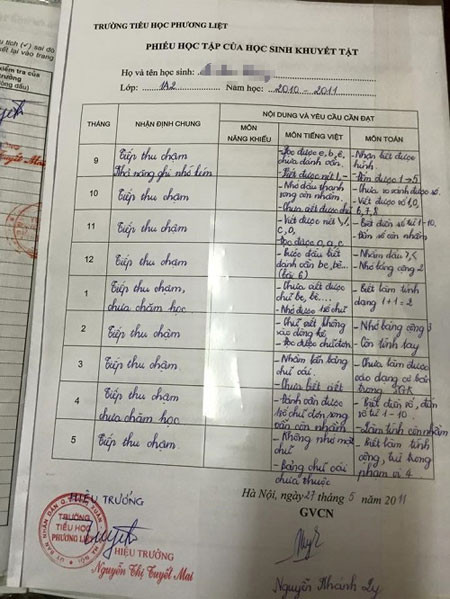 TRƯỜNG TIỂU HỌC PHƯƠNG LIỆT
PHIẾU HỌC TẬP CỦA HỌC SINH KHUYẾT TẬT
Họ và tên học sinh:
Lớp: 1A2 Năm học: 2010 - 2011
THÁNG
NHẬN ĐỊNH CHUNG
NỘI DUNG VÀ YÊU CẦU CẦN ĐẠT
MÔN NĂNG KHIẾU
MÔN TIẾNG VIỆT
MÔN TOÁN
9
Tiếp thu chậm
Khả năng ghi nhớ kém
- Đọc được e, b, ê,
chưa đánh vần.
- Viết được nét 1, -
- Nhận biết được
hình
- Đếm được 1→5
10
Tiếp thu chậm
- Nhớ dấu thanh
song còn nhầm.
- Chưa viết được chữ
- Chưa so sánh được số.
- Viết được số 1,0,
6,7,8
11
Tiếp thu chậm
- Viết được nét
c, o,
- Đọc được o, a, c
- Biết đếm số từ 1-10.
- Đếm số còn nhầm
12
Tiếp thu chậm
- Bước đầu biết
đánh vần be, bê...
(bài 6)
- Nhầm dấu >,<
- Nhớ bảng cộng 2
1
Tiếp thu chậm,
chưa chăm học
- Chưa viết được
chữ be, bê...
- Nhớ được số chữ
- Biết làm tính
dạng 1+1=2
2
Tiếp thu chậm
- Chữ viết không
vào dòng kẻ
- Đọc được chữ đơn
- Nhớ bảng cộng 3
- Còn tính tay
3
Tiếp thu chậm
- Nhầm lẫn bảng
chữ cái.
- Chưa biết viết
- Chưa làm được
các dạng cơ bản
trong SGK
4
Tiếp thu chậm
chưa chăm học
- Đánh vần được
số chữ đơn song
vẫn còn nhầm
- Biết điền số, đếm
số từ 1-10.
- Làm tính còn nhầm
5
Tiếp thu chậm
- Không nhớ mặt
chữ
- Bảng chữ cái
chưa thuộc
- Biết làm tính
cộng, trừ trong
phạm vi 4
Hà Nội, ngày 27 tháng 5 năm 2011
HIỆU TRƯỞNG
GVCN
TRƯỜNG
TIỂU HỌC
PHƯƠNG LIỆT
HIỆU TRƯỞNG
Nguyễn Thị Tuyết Mai
Nguyễn Khánh Ly